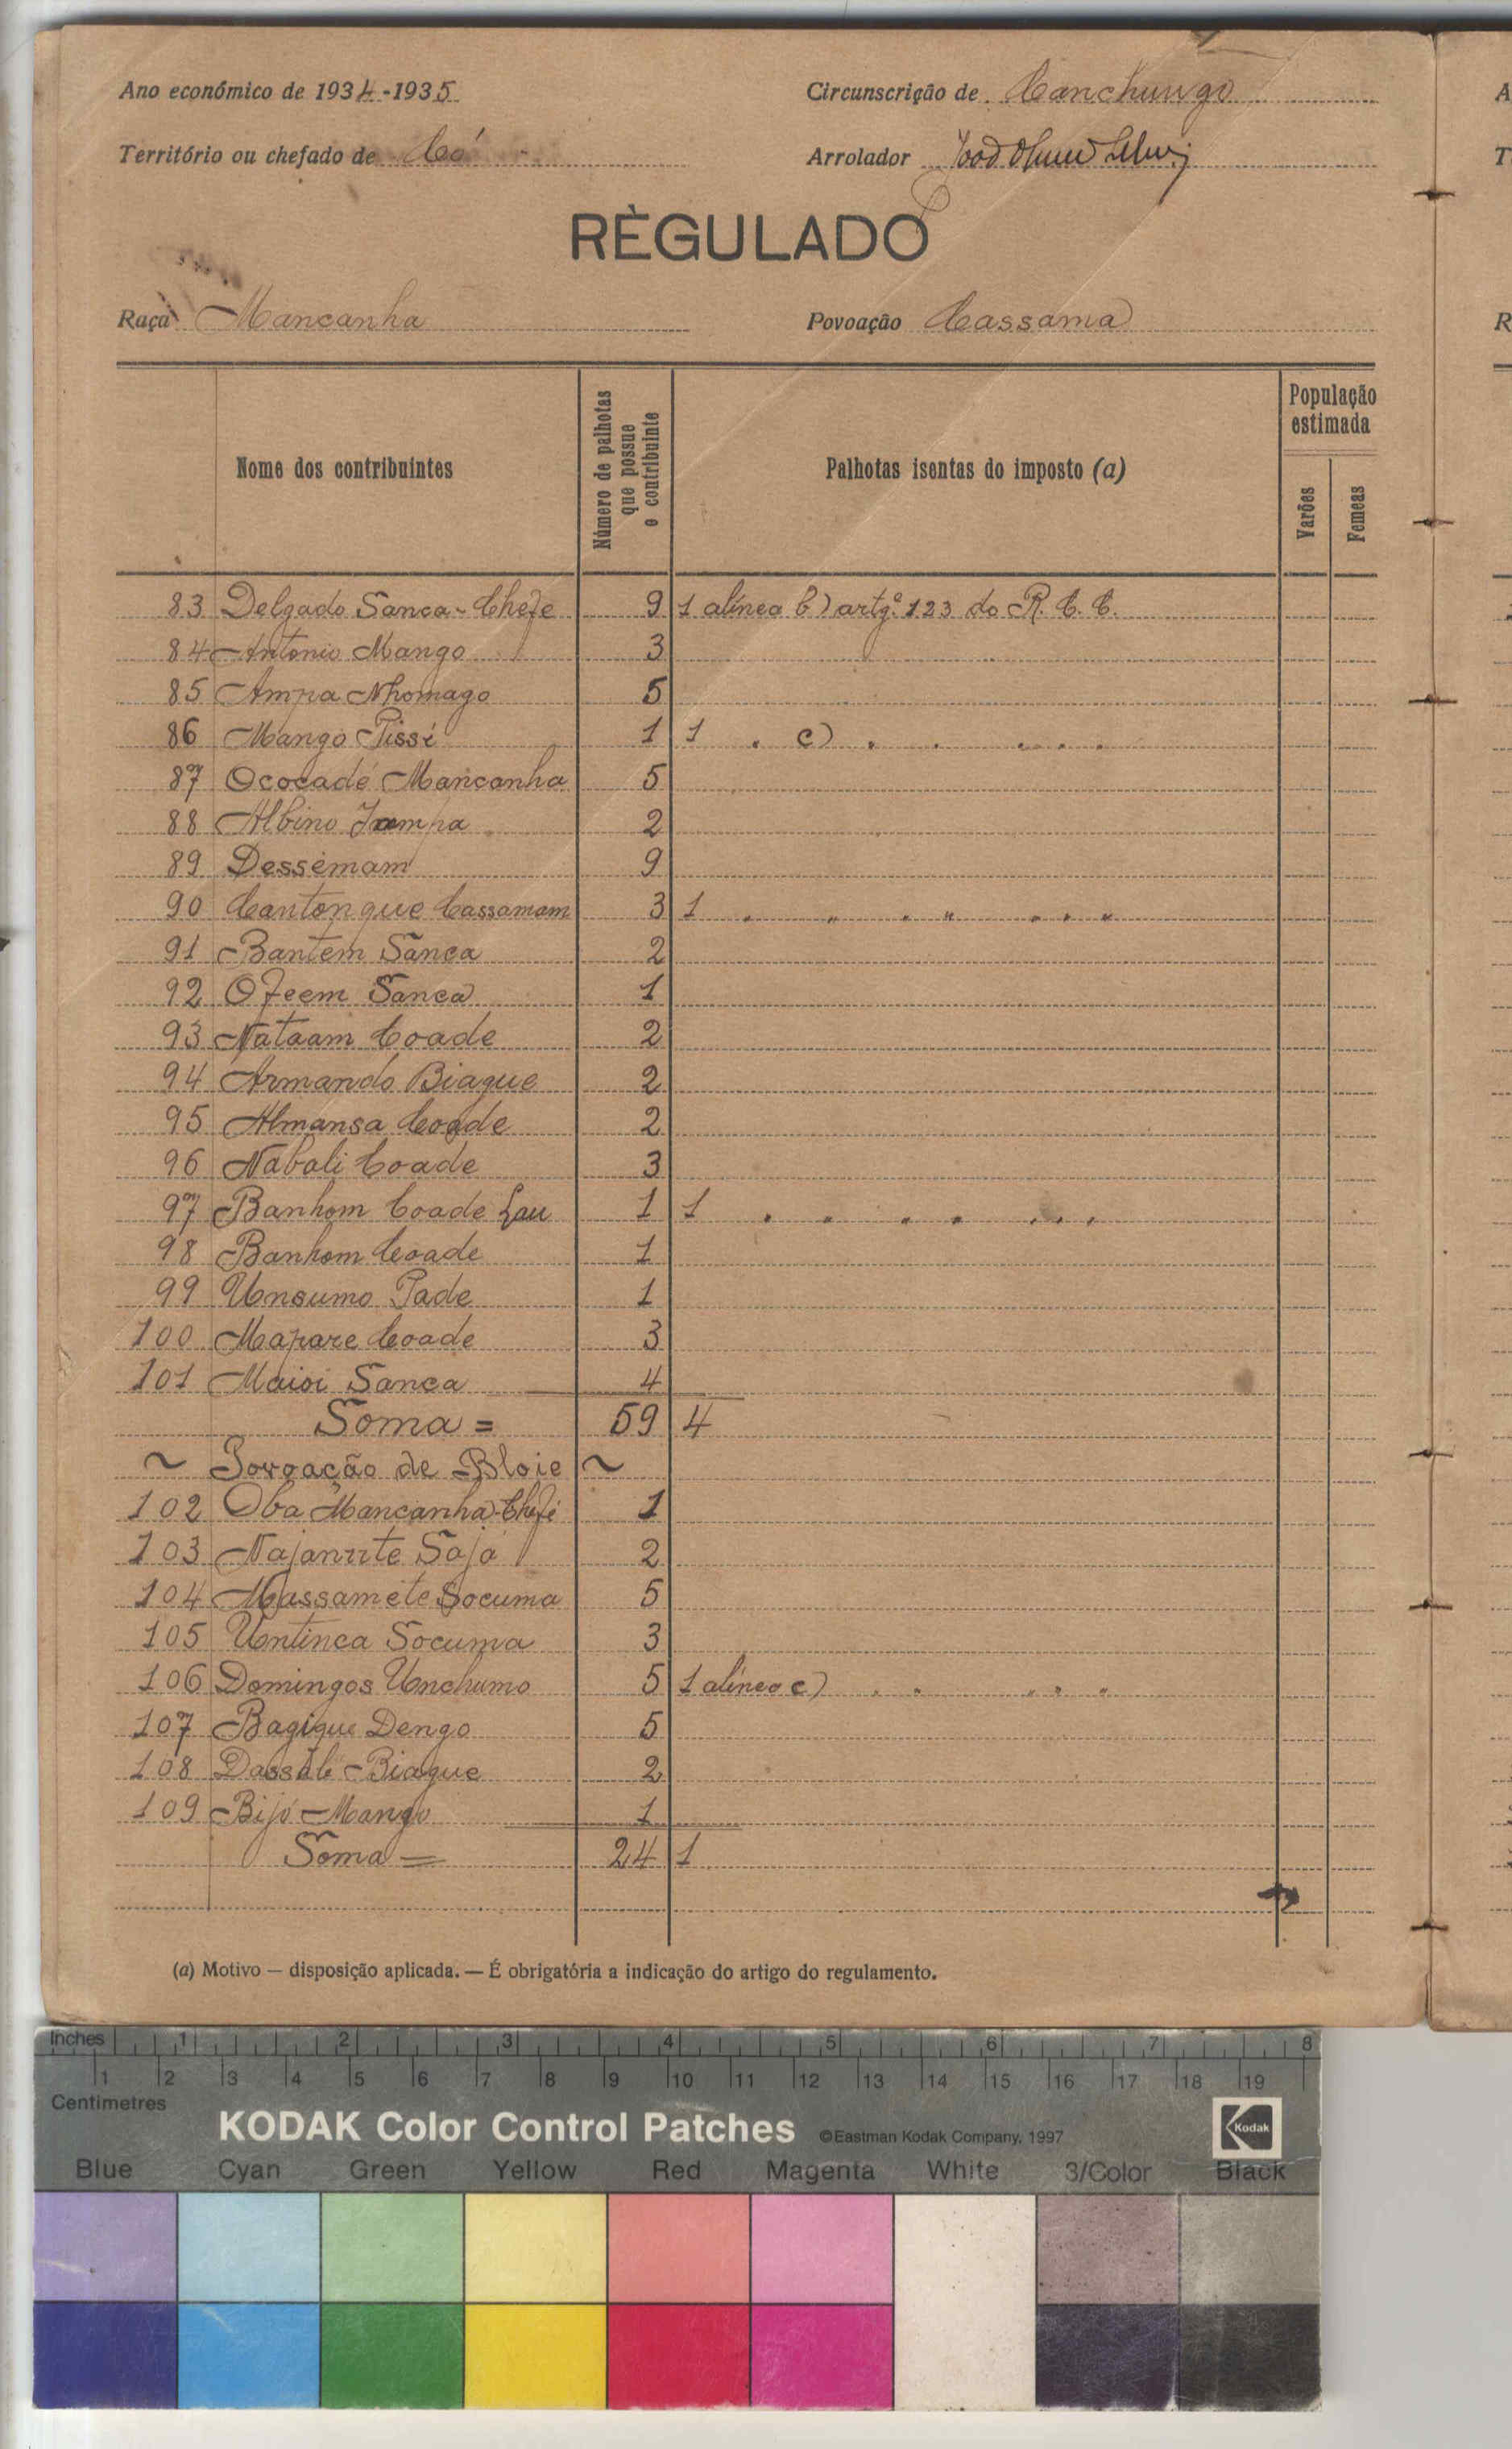 Ano económico de 1934-1935
Circunscrição de Canchungo
Território ou chefado de Có
Arrolador
RÈGULADO
Raça Mancanha
Povoação Cassama
Nome dos contribuintes
Número de palhotas que possue o contribuinte
Palhotas isentas do imposto (a)
População estimada
Varões
Femeas
83 Delgado Sanca - Chefe 9 1 alínea b) artgº 123 do R. C. C.
84 Antonio Mango 3
85 Ampa Nhomago 5
86 Mango Pissi 1 1 " c) " " " " "
87 Ococadé Mancanha 5
88 Albino Jampa 2
89 Dessémam 9
90 Cantongue Cassamam 3 1 " " " " " " "
91 Bantem Sanca 2
92 Ofeem Sanca 1
93 Nataam Coade 2
94 Armando Biague 2
95 Almansa Coade 2
96 Nabali Coade 3
97 Banhom Coade Lau 1 1 " " " " " " "
98 Banhom Coade 1
99 Unsumo Pade 1
100 Mapare Coade 3
101 Maioi Sanca 4
Soma = 59 4
~ Povoação de Bloie ~
102 Oba Mancanha - Chefe 1
103 Najanute Sajá 2
104 Massamete Socuma 5
105 Untinca Socuma 3
106 Domingos Unchumo 5 1 alínea c) " " " " "
107 Bagique Dengo 5
108 Dassalé Biague 2
109 Bijó Mango 1
Soma = 24 1
(a) Motivo — disposição aplicada. — É obrigatória a indicação do artigo do regulamento.
Inches 1 2 3 4 5 6 7 8
1 2 3 4 5 6 7 8 9 10 11 12 13 14 15 16 17 18 19
Centimetres
KODAK Color Control Patches ©Eastman Kodak Company, 1997 Kodak
Blue Cyan Green Yellow Red Magenta White 3/Color Black